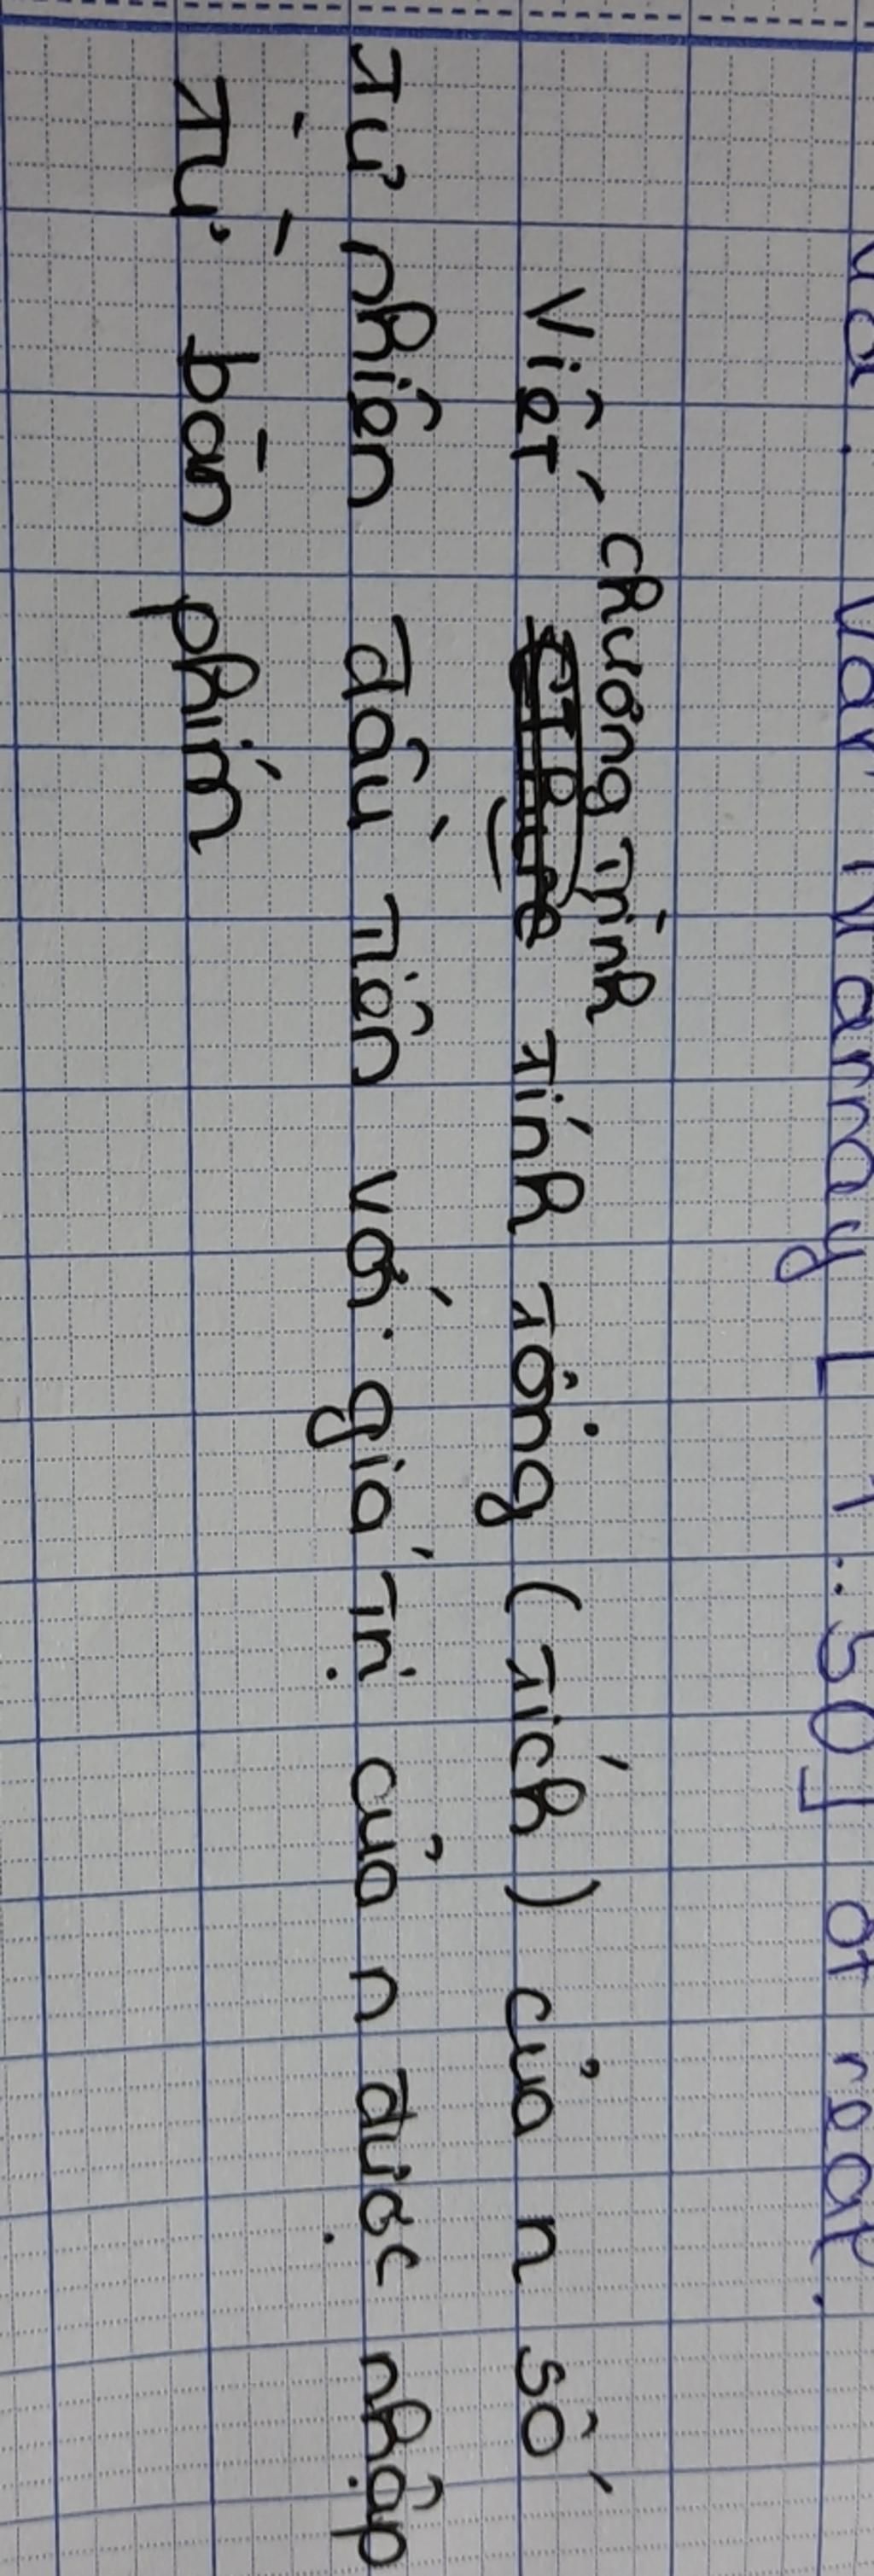 var N array [1..50] of real.
Viết chương trình tính tổng (tích) của n số
tự nhiên đầu tiên với giá trị của n được nhập
từ bàn phím